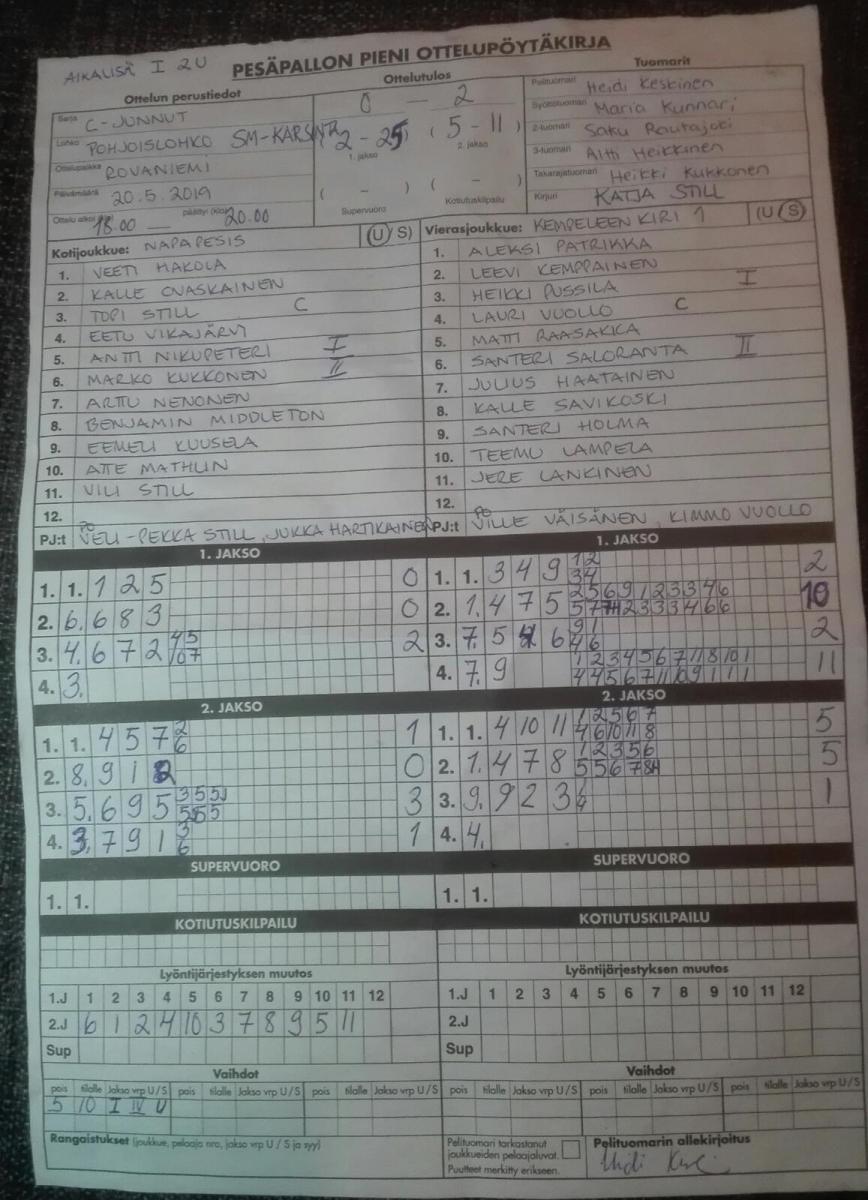 AIKALISÄ I 2U
PESÄPALLON PIENI OTTELUPÖYTÄKIRJA
Ottelun perustiedot
Sarja C-JUNNUT
Lohko POHJOISLOHKO SM-KARSINTA
Ottelupaikka ROVANIEMI
Päivämäärä 20.5.2019
Ottelu alkoi 18.00 — päättyi (klo) 20.00
Ottelutulos
0 - 2
(2 - 25) (5 - 11)
1. jakso 2. jakso
( - ) ( - )
Supervuoro Kotiutuskilpailu
Tuomarit
Pelituomari Heidi Keskinen
Syöttötuomari Maria Kunnari
2-tuomari Saku Rautajoki
3-tuomari Altti Heikkinen
Takarajatuomari Heikki Kukkonen
Kirjuri KATJA STILL
Kotijoukkue: NAPAPESIS (U/S)
1. VEETI HAKOLA
2. KALLE OVASKAINEN
3. TOPI STILL C
4. EETU VIKAJÄRVI
5. ANTTI NIKUPETERI I
6. MARKO KUKKONEN II
7. ARTTU NENONEN
8. BENJAMIN MIDDLETON
9. EEMELI KUUSELA
10. ATTE MATHLIN
11. VILI STILL
12.
PJ:t PO VELI-PEKKA STILL, JUKKA HARTIKAINEN
Vierasjoukkue: KEMPELEEN KIRI 1 (U/S)
1. ALEKSI PATRIKKA
2. LEEVI KEMPPAINEN
3. HEIKKI PUSSILA I
4. LAURI VUOLLO C
5. MATTI RAASAKKA
6. SANTERI SALORANTA II
7. JULIUS HAATAINEN
8. KALLE SAVIKOSKI
9. SANTERI HOLMA
10. TEEMU LAMPELA
11. JERE LANKINEN
12.
PJ:t PO VILLE VÄISÄNEN, KIMMO VUOLLO
1. JAKSO
1. 1. 1 2 5 0
2. 6. 6 8 3 0
3. 4. 6 7 2 2
4. 3.
1. JAKSO
1. 1. 3 4 9 12 34 2
2. 1. 4 7 5 10
3. 7. 5 6 2
4. 7. 9 11
2. JAKSO
1. 1. 4 5 7 2 6 1
2. 8. 9 1 2 0
3. 5. 6 9 5 3
4. 3. 7 9 1 3 6 1
2. JAKSO
1. 1. 4 10 11 1 2 5 6 7 4 6 10 11 8 5
2. 1. 4 7 8 1 2 3 5 6 5
3. 9. 9 2 3 1
4. 4.
SUPERVUORO
1. 1.
SUPERVUORO
1. 1.
KOTIUTUSKILPAILU
KOTIUTUSKILPAILU
Lyöntijärjestyksen muutos
1.J 1 2 3 4 5 6 7 8 9 10 11 12
2.J 6 1 2 4 10 3 7 8 9 5 11
Sup
Lyöntijärjestyksen muutos
1.J 1 2 3 4 5 6 7 8 9 10 11 12
2.J
Sup
Vaihdot
pois tilalle Jakso vrp U/S pois tilalle Jakso vrp U/S pois tilalle Jakso vrp U/S
5 10 I IV U
Vaihdot
pois tilalle Jakso vrp U/S pois tilalle Jakso vrp U/S pois tilalle Jakso vrp U/S
Rangaistukset (joukkue, pelaaja nro, jakso vrp U / S ja syy)
Pelituomari tarkastanut
joukkueiden pelaajaluvat.
Puutteet merkitty erikseen.
Pelituomarin allekirjoitus